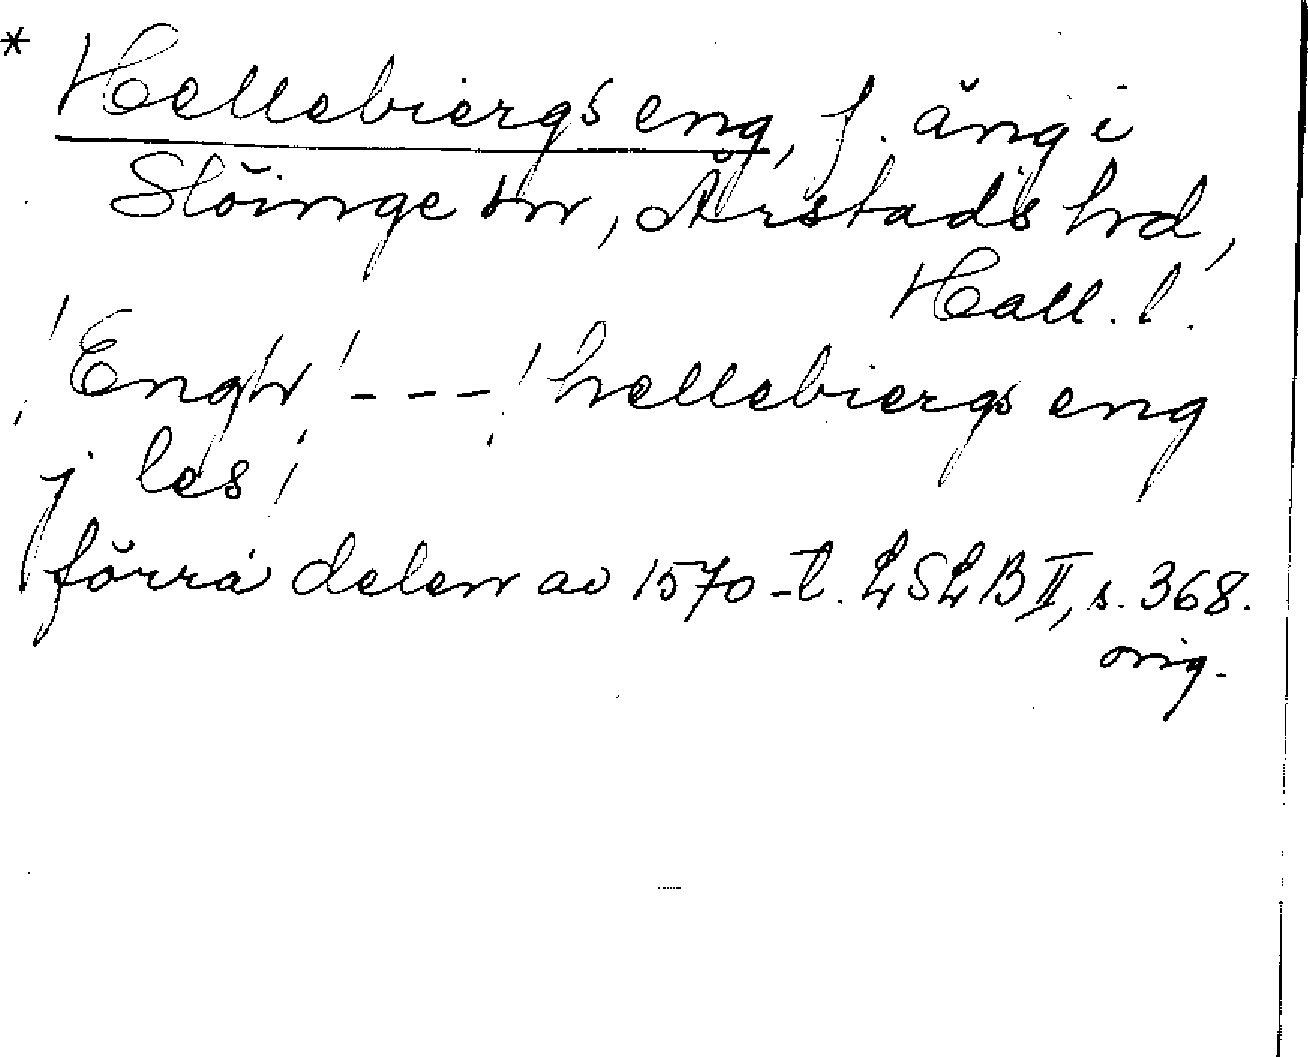 * Hellebiergs eng, f. äng i
Slöinge sn, Årstads hd,
Hall. l.
¦Engh¦ - - - ¦hellebiergs eng
j les¦
förra delen av 1570-t. LSLB II, s. 368.
orig.